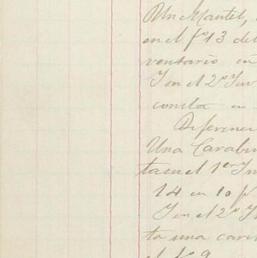 Un Mantel,
en el fº 13 del
ventario en
Y en el 2º Inv
consta en
Diferenci
Una Carab
ta en el 1er In
14 en 10 p
Y en el 2º I
ta una cara
el fº 9